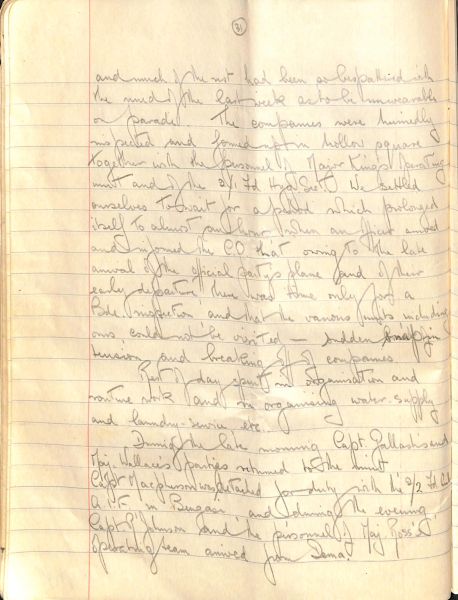 31
and much of the rest had been so bespattered with
the mud of the last week as to be unwearable
on parade. The companies were hurriedly
inspected and formed up in hollow square
together with the personnel of Major King's operating
unit and of the 2/1 Fd Hyg Sect. We settled
ourselves to wait for a period which prolonged
itself to almost an hour when an officer arrived
and informed the CO that owing to the late
arrival of the official party's plane and of their
early departure there was time only for a
Bde. Inspection and that the various units including
ours could not be visited — sudden snap in
tension and breaking off of companies.
Rest of day spent in organisation and
routine work and in organising water-supply
and laundry-service etc.
During the late morning Capt. Gallash's and
Maj. Wallace's parties returned to the unit
Capt Macpherson was detailed for duty with the 2/2 Fd
A.I.F. in Bengasi and during the evening
Capt Johnson and the personnel of Maj. Ross's
operating team arrived from Derna.